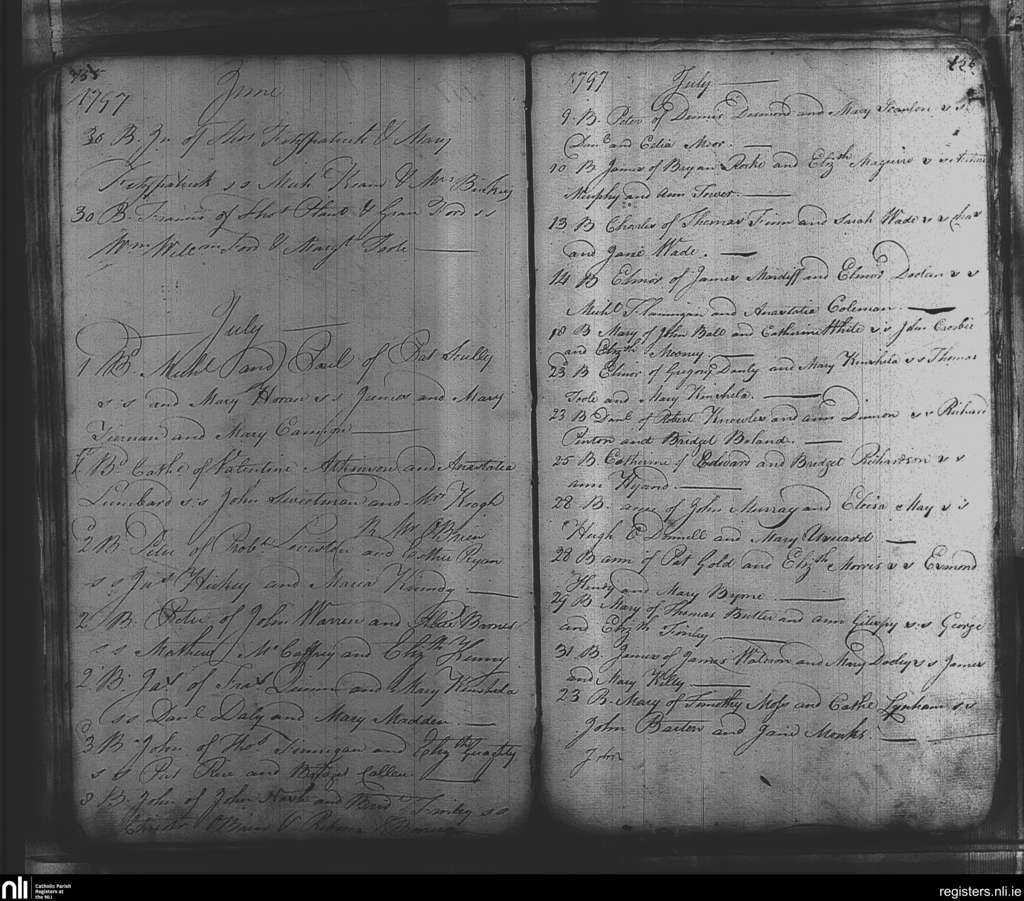 1797 June
30 B. Jn. of Thos Fitzpatrick & Mary
Fitzpatrick s s Mich & Mrs
30 B. Francis of Thos & Ford ss
Wm Ford & Mary Toole
July
1 Bd. Michl and Paul of Pat Scully
s s and Mary Horan s s James and Mary
Tiernan and Mary
Bd Cathe of Valentine Atkinson and Anastatia
Lumbard s s John Sweetman and Mr Keogh
B Mr O'Brien
2 B Peter of Robt and Cathe Ryan
s s Jas Hickey and Maria
2 B. Peter of John Warren and Barnes
s s Mathew McCaffrey and Elizth Kenny
2 B. Jas of Fras Quinn and Mary Kinshela
ss Danl Daly and Mary Madden
3 B John of Thos Finnigan and Elizth Geraghty
s s Pat Rice and Bridget Callen
8 B. John of John and Farley s s
O'Brien & Rebecca
1797 July 156
9 B. Peter of Dennis Desmond and Mary Scanlon s s
and Celia Moor.
10 B James of Bryan Rorke and Elizth Maguire s s
Murphy and Ann Tower
13 B Charles of Thomas Finn and Sarah Wade s s Chas
and Jane Wade.
14 B Elinor of James Mordiff and Elinor Doolan s s
Michl Flannigan and Anastatia Coleman
18 B Mary of John Ball and Catherine White s s John Crosbie
and Elizth Mooney.
23 B Elinor of Gregory Danly and Mary Kinshela s s Thomas
Toole and Mary Kinshela.
23 B Danl of Robert Knowles and ann Dinnon s s Richard
Penton and Bridget Boland.
25 B. Catherine of Edward and Bridget Richardson s s
anne Kyand.
28 B. anne of John Murray and Eloisa May s s
Hugh O Donnell and Mary
28 B ann of Pat Gold and Elizth Morris s s Esmond
Henry and Mary Byrne
29 B Mary of Thomas Butler and ann Gilespy s s George
and Elizth Finley
31 B James of James Waldron and Mary Dooly s s James
and Mary Kelly
23 B Mary of Timothy Moss and Cathe Lynham s s
John Barton and Jane Monks.
John
nli Catholic Parish
Registers at
the NLI
registers.nli.ie